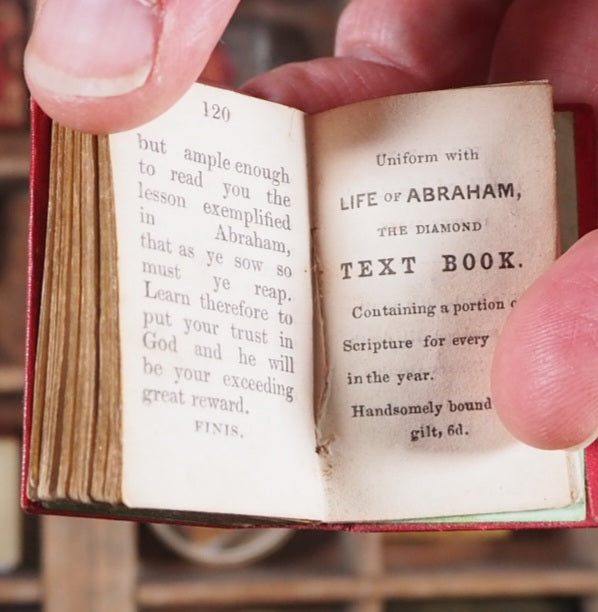 120
but ample enough
to read you the
lesson exemplified
in Abraham,
that as ye sow so
must ye reap.
Learn therefore to
put your trust in
God and he will
be your exceeding
great reward.
FINIS.
Uniform with
LIFE OF ABRAHAM,
THE DIAMOND
TEXT BOOK.
Containing a portion
Scripture for every
in the year.
Handsomely bound
gilt, 6d.